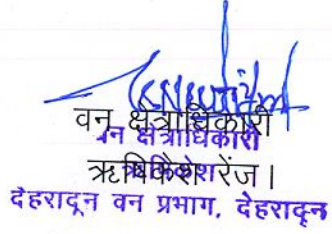 वन क्षेत्राधिकारी
वन क्षेत्राधिकारी
ऋषिकेश रेंज।
देहरादून वन प्रभाग, देहरादून